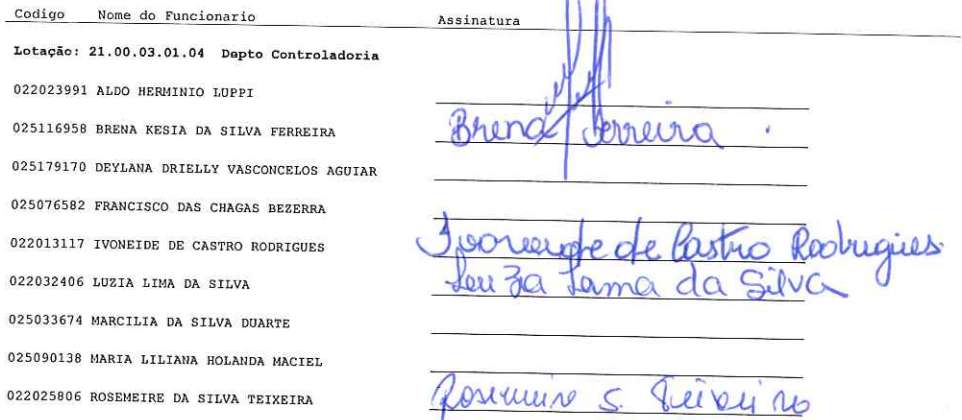 Codigo Nome do Funcionario Assinatura
Lotação: 21.00.03.01.04 Depto Controladoria
022023991 ALDO HERMINIO LUPPI
025116958 BRENA KESIA DA SILVA FERREIRA Brena Ferreira
025179170 DEYLANA DRIELLY VASCONCELOS AGUIAR
025076582 FRANCISCO DAS CHAGAS BEZERRA
022013117 IVONEIDE DE CASTRO RODRIGUES Ivoneide de Castro Rodrigues
022032406 LUZIA LIMA DA SILVA Luzia Lima da Silva
025033674 MARCILIA DA SILVA DUARTE
025090138 MARIA LILIANA HOLANDA MACIEL
022025806 ROSEMEIRE DA SILVA TEIXEIRA Rosemeire S. Teixeira